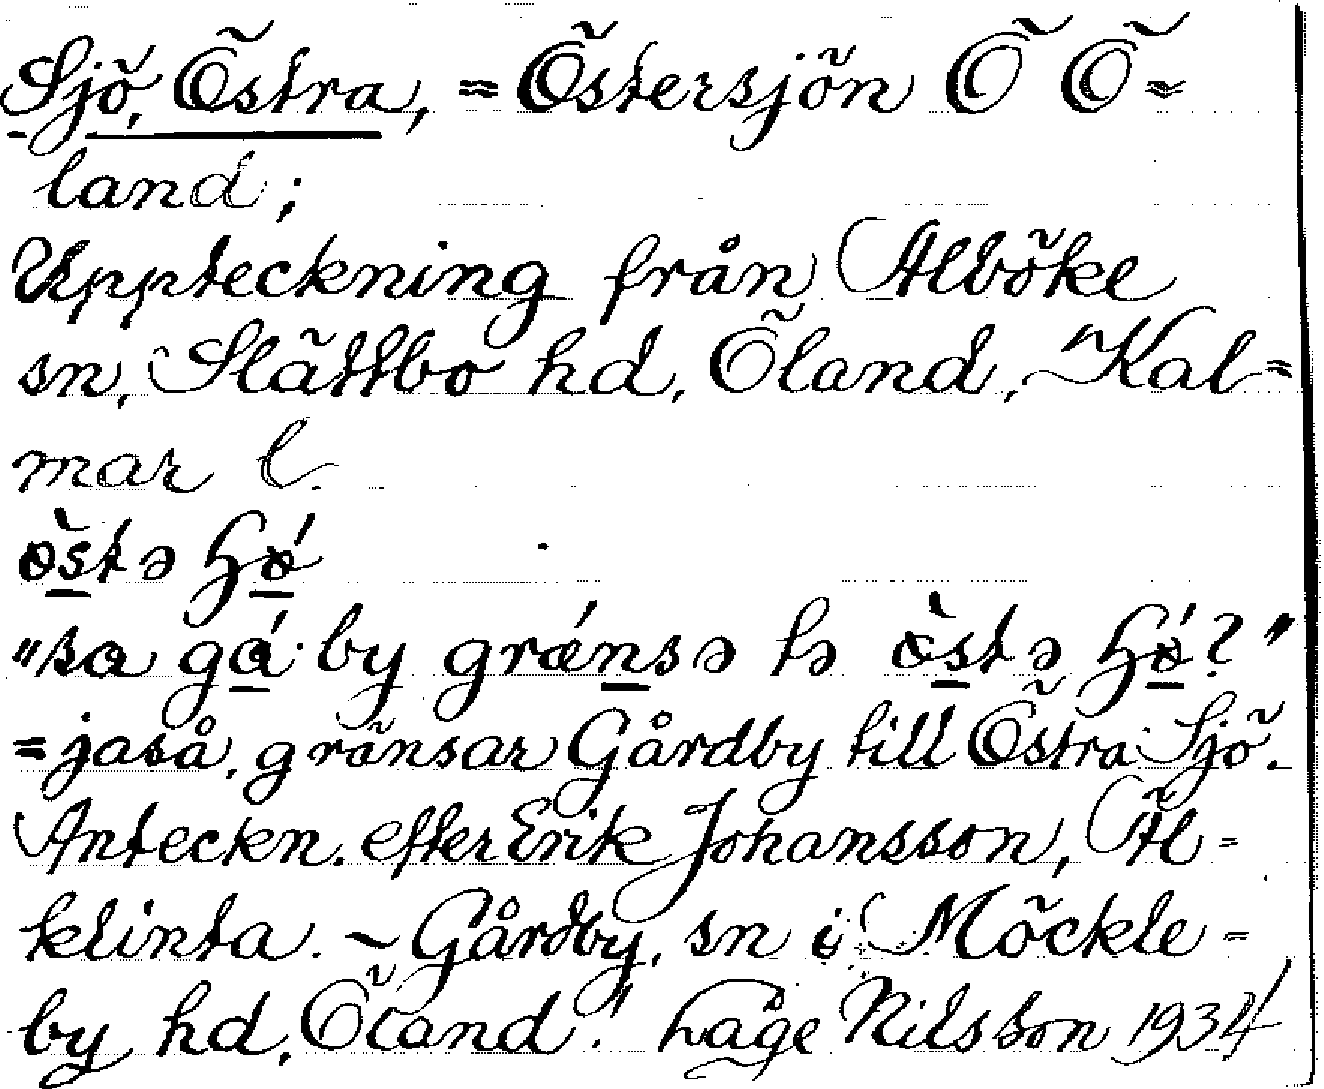 Sjö, Östra, = Östersjön Ö Ö=
land;
Uppteckning från Alböke
sn, Slättbo hd, Öland, Kal=
mar l.
òstə ɧǿ
"sa gá by grǽnsə tə òstə ɧǿ?"
= jaså, gränsar Gårdby till Östra Sjö.
Anteckn. efter Erik Johansson, Äl-
klinta. – Gårdby, sn i Möckle-
by hd, Öland." Låge Nilsson 1934